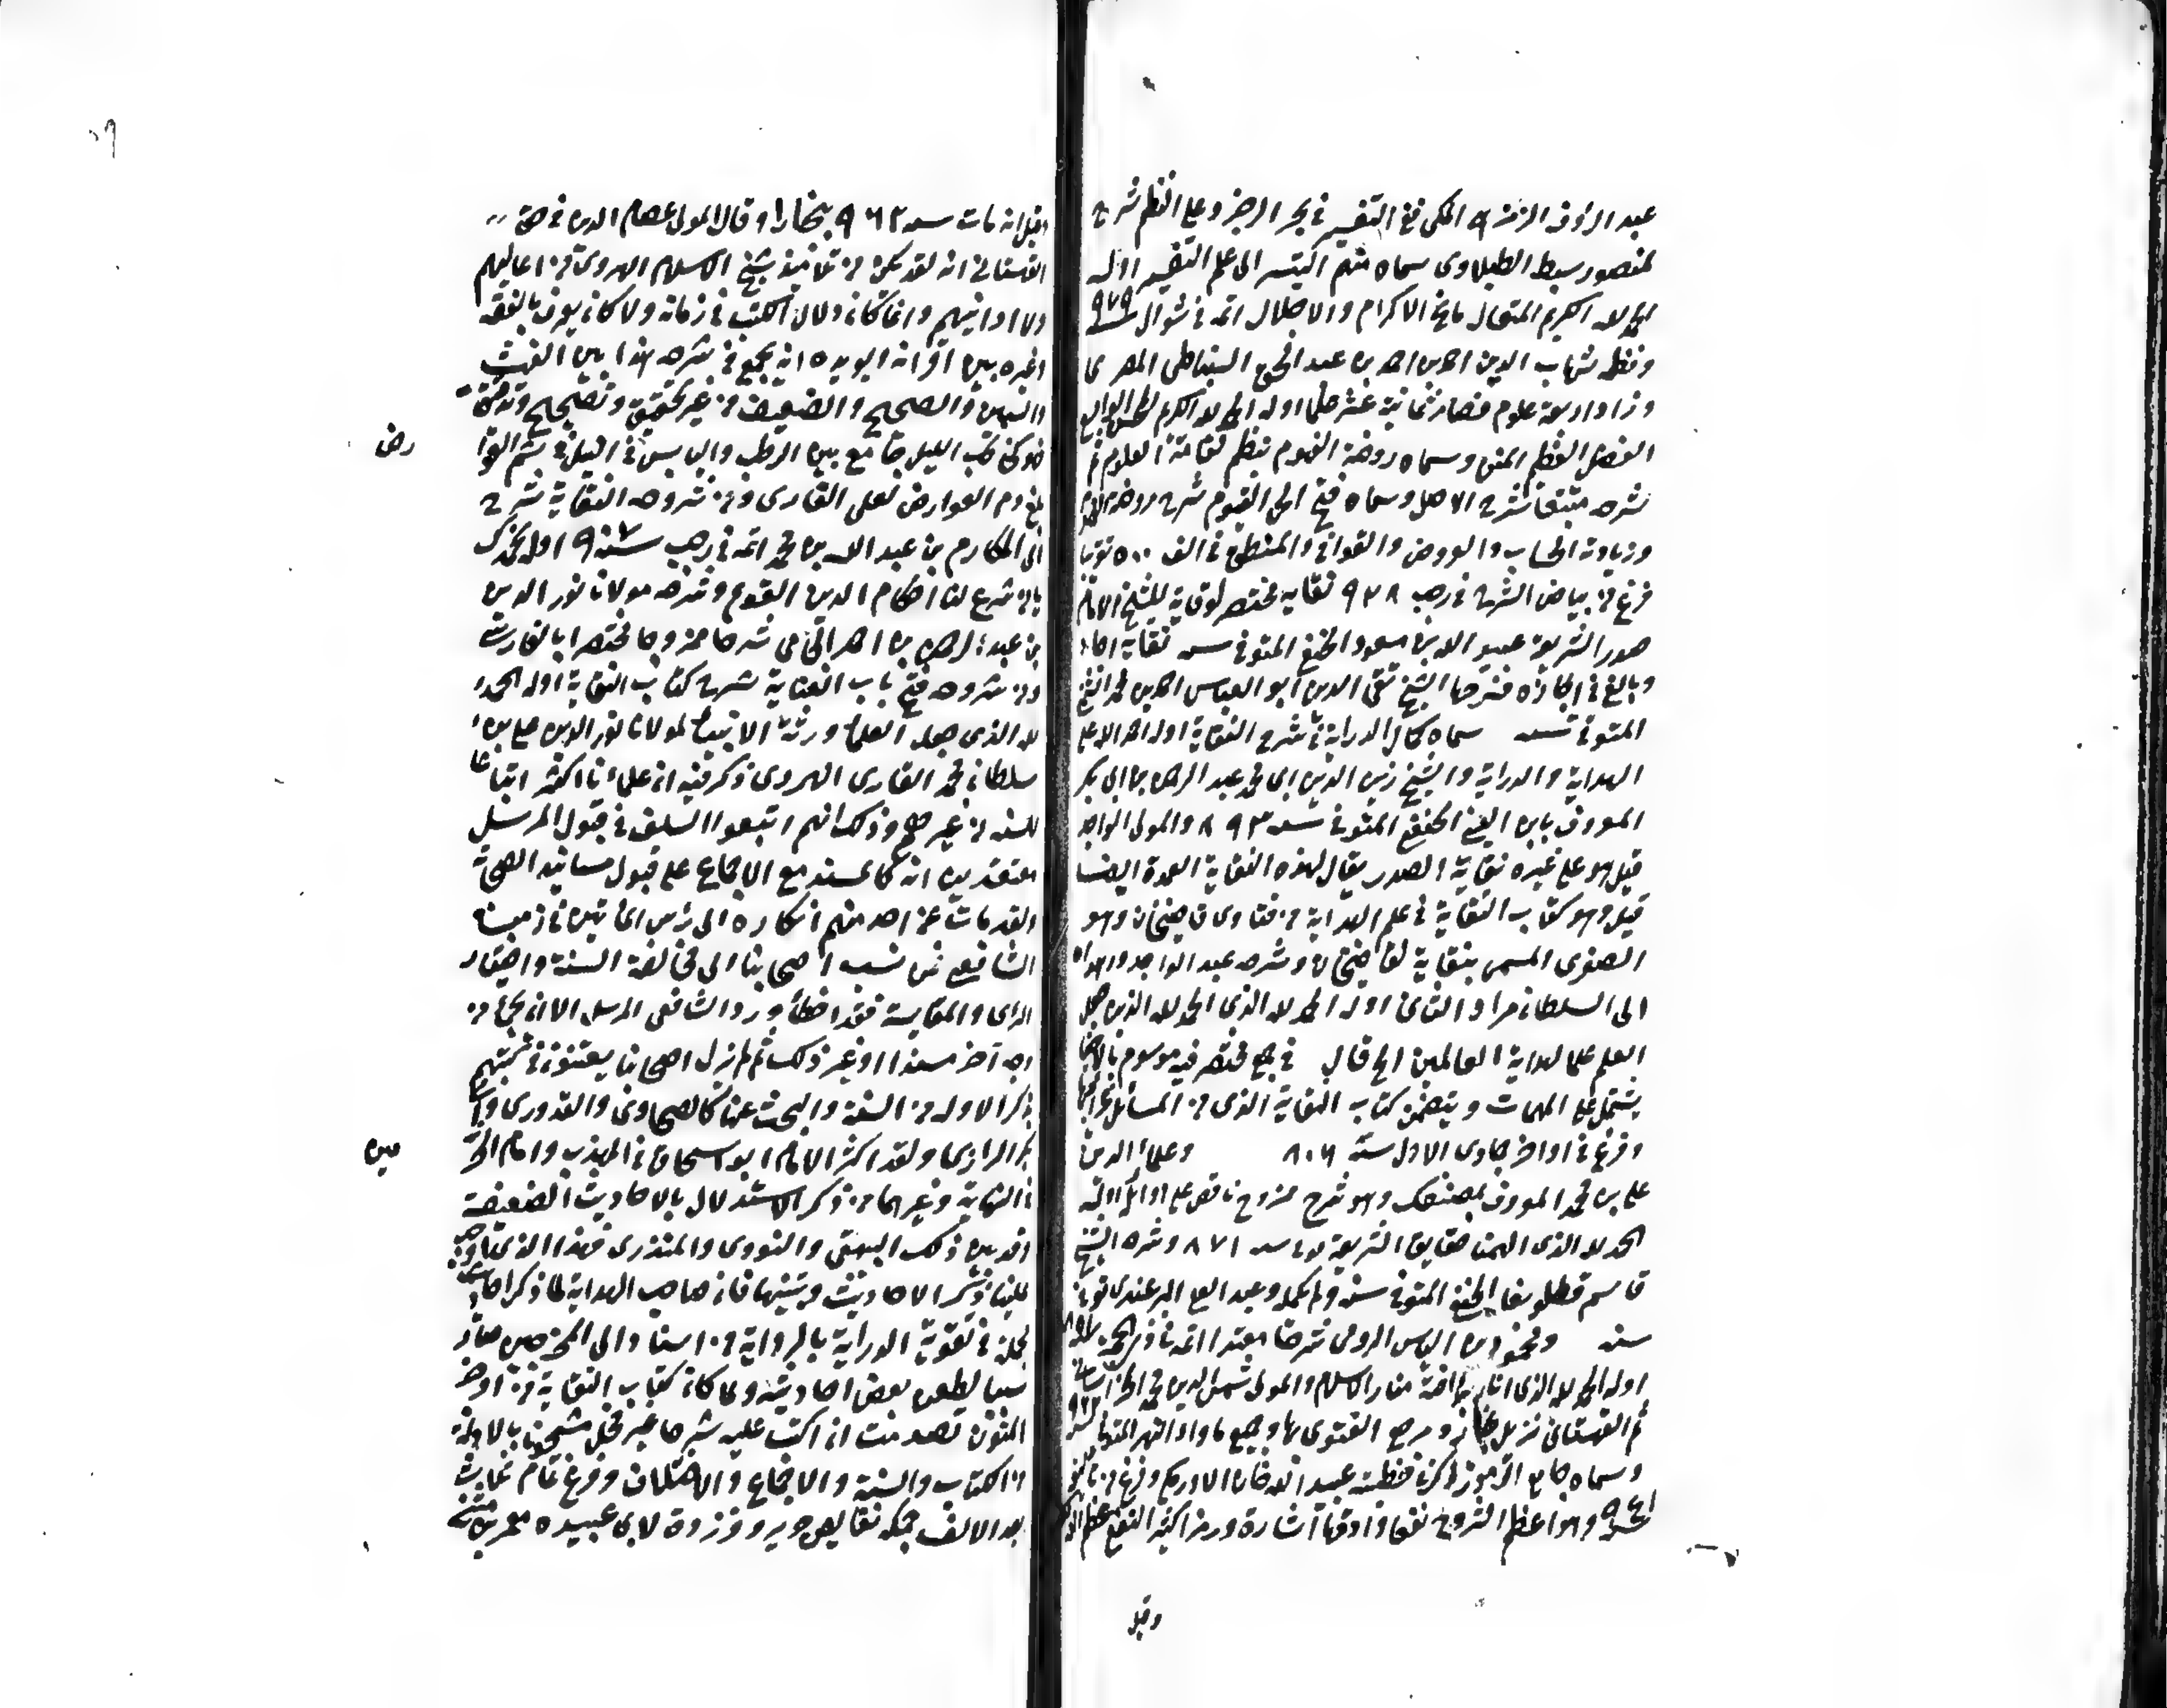 عبد الرؤف الزمزمي المكي في التفسير في بحر الرجز وعلى النظم شرح
لمنصور سبط الطبلاوي سماه منهج التيسير الى علم التفسير اوله
الحمد لله الكريم المتعال مانح الاكرام والاجلال اتمه في شوال سنة ٩٧٩
ونظمه شهاب الدين احمد بن احمد بن عبد الحق السنباطي المصري
وزاد اربعة علوم فصار ثمانية عشر علما اوله الحمد لله الكريم
الفضل العظيم المنن وسماه روضة الفهوم بنظم نقاية العلوم ثم
شرحه شرح الاصل وسماه فتح الحي القيوم شرح روضة
وزيادته الحساب والعروض والقوافي والمنطق في الف ٥٠٠
فرغ من بياض الشرح في رجب ٩٣٨ نقاية مختصر الوقاية للشيخ الامام
صدر الشريعة عبيد الله بن مسعود الحنفي المتوفى سنة
وبالغ في ايجازه فشرحها الشيخ تقي الدين ابو العباس احمد بن محمد الشمني
المتوفى سنة سماه كمال الدراية في شرح النقاية اوله احمد الله على
الهداية والدراية والشيخ زين الدين ابي محمد عبد الرحمن بن ابي بكر
المعروف بابن العيني الحنفي المتوفى سنة ٨٩٣ والمولى
قيل هو على غيره نقاية الصدر يقال لهذه النقاية العمدة ايضا
قيل وهو كتاب النقاية في علم الهداية من فتاوى قاضيخان وهو
الصغرى المسمى بنقاية لقاضيخان وشرحه عبد الواحد واهداه
الى السلطان مراد الثاني اوله الحمد لله الذي الحمد لله الذي جعل
العلم علما لهداية العالمين الخ قال في جمع مختصر فيه موسوم
يشتمل على المهمات ويتضمن كتاب النقاية الذي من المسائل
وفرغ في اواخر جمادى الاول سنة ٨٠٦ وعلاء الدين
علي بن محمد المعروف بمصنفك وهو شرح ممزوج ناقص على اوائله اوله
الحمد لله الذي الهمنا حقايق الشريعة سنة ٨٧١ وشرحه الشيخ
قاسم قطلوبغا الحنفي المتوفى سنة ولم يكمله وعبد العلي البرجندي
سنة ومحمود بن الياس الرومي شرحا مفيدا اتمه في
اوله الحمد لله الذي منار الاسلام والمولى شمس الدين محمد الخراساني
ثم القهستاني نزيل بخارا ومرجع الفتوى بها وجميع ما وراء النهر المتوفى
وسماه جامع الرموز عبيد الله خان وفرغ من
٩٤١ وهو اعظم الشروح نفعا وادقها اشارة ورمزا كثير النفع
وقيل
وقيل انه مات سنة ٩٦٢ ببخارا وقال المولى عصام الدين في حق
القهستاني انه لم يكن من تلاميذ شيخ الاسلام الهروي من اعاليهم
ولا ادانيهم وانما كان دلال الكتب في زمانه ولا كان يعرف بالفقه
وغيره بين اقرانه ويؤيده انه يجمع في شرحه هذا بين الغث
والسمين والصحيح والضعيف من غير تحقيق وتصحيح وتدقيق
فهو كحاطب الليل جامع بين الرطب واليابس في الليل
رض
ذم العوارض لعلي القاري ومن شروح النقاية شرح
ابي المكارم بن عبد الله بن محمد اتمه في رجب سنة ٩٠٧ اوله نحمدك
يا من شرع لنا احكام الدين القويم وشرحه مولانا نور الدين
بن عبد الرحمن بن احمد الجامي شرحا ممزوجا مختصرا بالفارسية
ومن شروحه فتح باب العناية شرح كتاب النقاية اوله الحمد
لله الذي جعل العلماء ورثة الانبياء لمولانا نور الدين علي بن
سلطان محمد القاري الهروي ذكر فيه ان علماءنا اكثر اتباعا
للسنة من غيرهم وذلك انهم اتبعوا السلف في قبول المرسل
معتقدين انه كالمسند مع الاجماع على قبول مسانيد الصحابة
عن احد منهم انكاره الى رأس المائتين في زمن
الشافعي فمن نسب اصحابنا الى مخالفة السنة واختيار
الرأي والمقايسة فقد اخطأ ورد الشافعي المرسل الا ان يجئ من
وجه آخر مسندا او غير ذلك ثم لم يزل اصحابنا يعتنون في كتبهم
بذكر الادلة من السنة والبحث عنها كالطحاوي والقدوري وابي
بكر الرازي ولقد اكثر الامام ابو اسحاق في المهذب وامام الحر
مين
في النهاية وغيرهما من ذكر الاستدلال بالاحاديث الضعيفة
وقد بين ذلك البيهقي والنووي والمنذري فهذا الذي اوجب
علينا ذكر الاحاديث وتبيينها فان صاحب الهداية لما ذكر احاديث
مجملة في تقوية الدراية بالرواية من اسناد الى المخرجين صار
سببا لطعن بعض احاديثه ولما كان كتاب النقاية من اوجز
المتون تصديت ان اكتب عليه شرحا غير مخل مشحونا بالادلة
من الكتاب والسنة والاجماع والاختلاف وفرغ تمام
بعد الالف بمكة نقايض جرير وفرزدق لابي عبيدة معمر بن مثنى